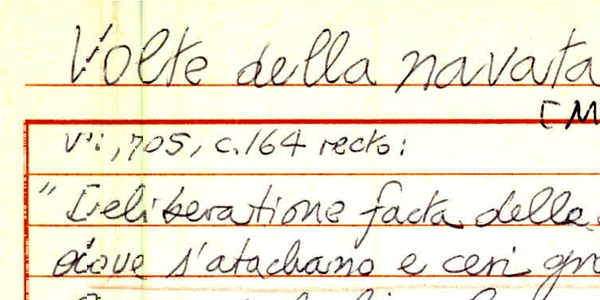 Volte della navata
[M
Vi, 705, c. 164 recto:
"Deliberatione facta delle
dove s'atachano e ceri gro